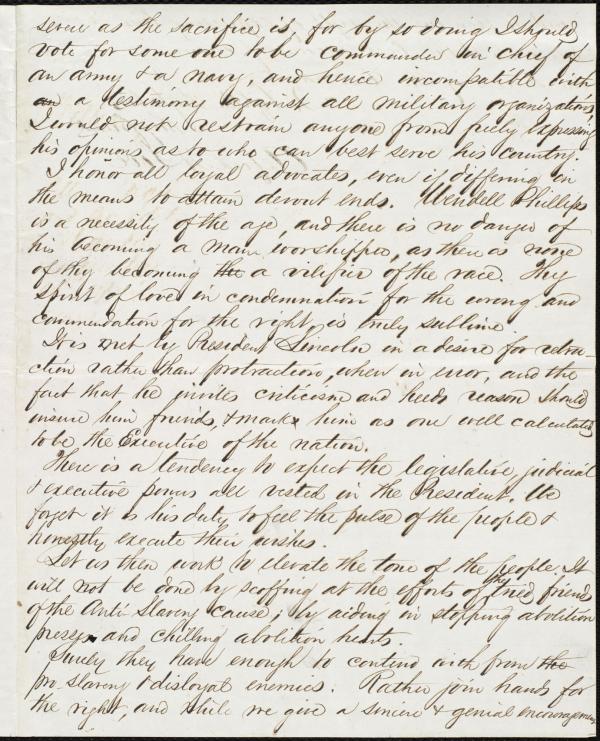 severe as the sacrifice is, for by so doing I should
vote for some one to be commander in chief of
an army & a navy, and hence incompatible with
an a testimony against all military organizations
I would not restrain anyone from freely expressing
his opinions as to who can best serve his country.
I honor all loyal advocates, even if differing in
the means to attain devout ends. Wendell Phillips
is a necessity of the age, and there is no danger of
his becoming a man worshipper, as there is none
of thy becoming the a vilifier of the race. Thy
spirit of love in condemnation for the wrong and
commendation for the right, is truly sublime.
It is met by President Lincoln in a desire for retrac-
tion rather than protraction, when in error, and the
fact that he invites criticism and heeds reason should
insure him friends, & mark him as one well calculated
to be the Executive of the nation.
There is a tendency to expect the legislative, judicial
& executive powers all vested in the President. We
forget it is his duty to feel the pulse of the people &
honestly execute their wishes.
Let us then work to elevate the tone of the people. It
will not be done by scoffing at the efforts of the tried friends
of the Anti-Slavery cause; by aiding in stopping abolition
presses and chilling abolition hearts.
Surely they have enough to contend with from the
pro-slavery & disloyal enemies. Rather join hands for
the right, and while we give a sincere & genial encouragement